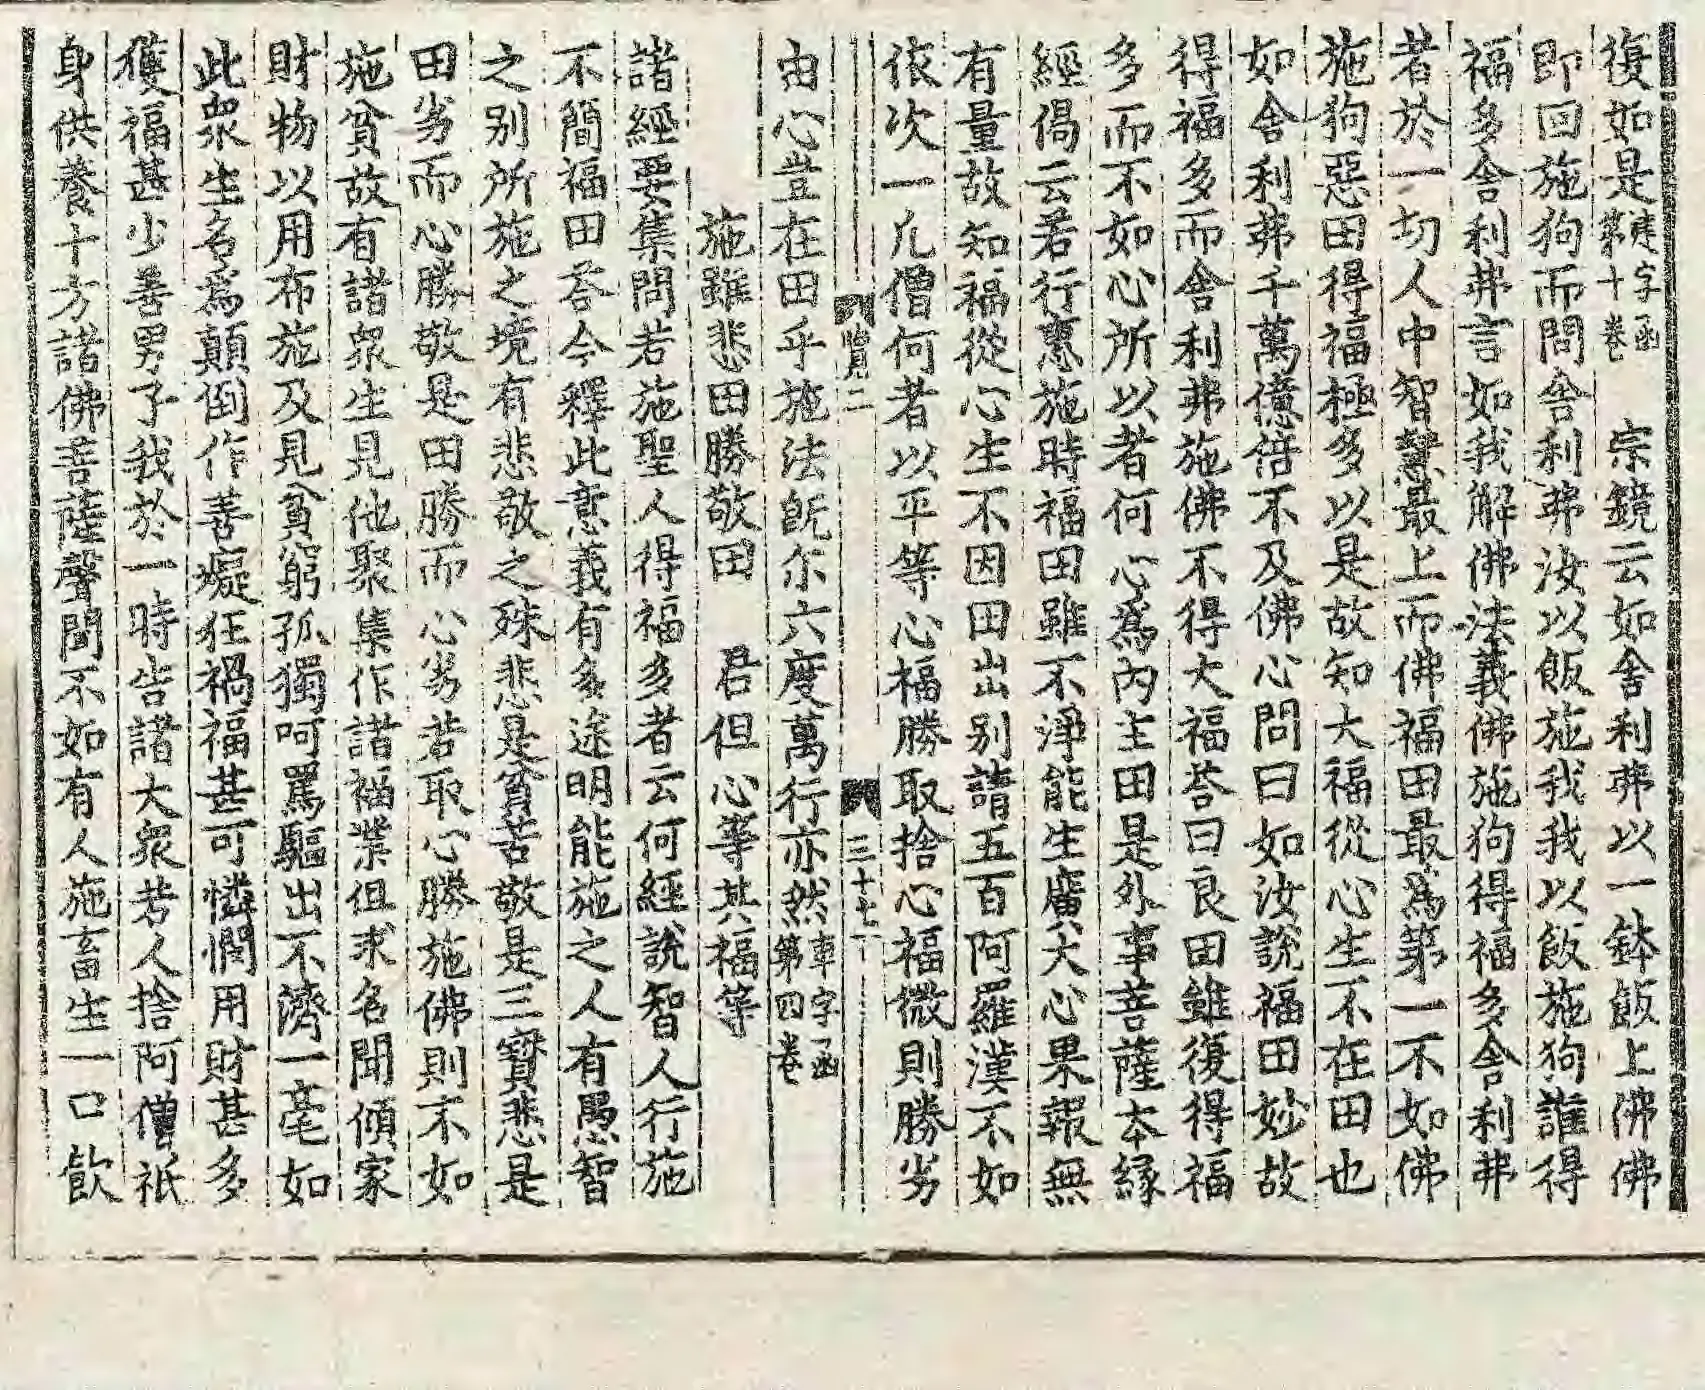 復如是㨗字函第十卷　宗鏡云如舍利弗以一鉢飯上佛佛
即回施狗而問舍利弗汝以飯施我我以飯施狗誰得
福多舍利弗言如我解佛法義佛施狗得福多舍利弗
者於一切人中智慧最上而佛福田最爲第一不如佛
施狗惡田得福極多以是故知大福從心生不在田也
如舍利弗千萬億倍不及佛心問曰如汝說福田妙故
得福多而舍利弗施佛不得大福荅曰良田雖復得福
多而不如心所以者何心爲內主田是外事菩薩本緣
經偈云若行惠施時福田雖不淨能生廣大心果報無
有量故知福從心生不因田出別請五百阿羅漢不如
依次一凢僧何者以平等心福勝取捨心福微則勝劣
賛二　三十七
由心豈在田乎施法旣尓六度萬行亦然車字函第四卷
施雖悲田勝敬田　君但心等其福等
諸經要集問若施聖人得福多者云何經說智人行施
不簡福田荅今釋此意義有多途明能施之人有愚智
之別所施之境有悲敬之殊悲是貧苦敬是三寶悲是
田劣而心勝敬是田勝而心劣若取心勝施佛則不如
施貧故有諸眾生見他聚集作諸福業但求名聞傾家
財物以用布施及見貧窮孤獨呵罵驅出不濟一毫如
此眾生名爲顛倒作善癡狂禍福甚可憐憫用財甚多
獲福甚少善男子我於一時告諸大衆若人捨阿僧祇
身供養十方諸佛菩薩聲聞不如有人施畜生一口飲